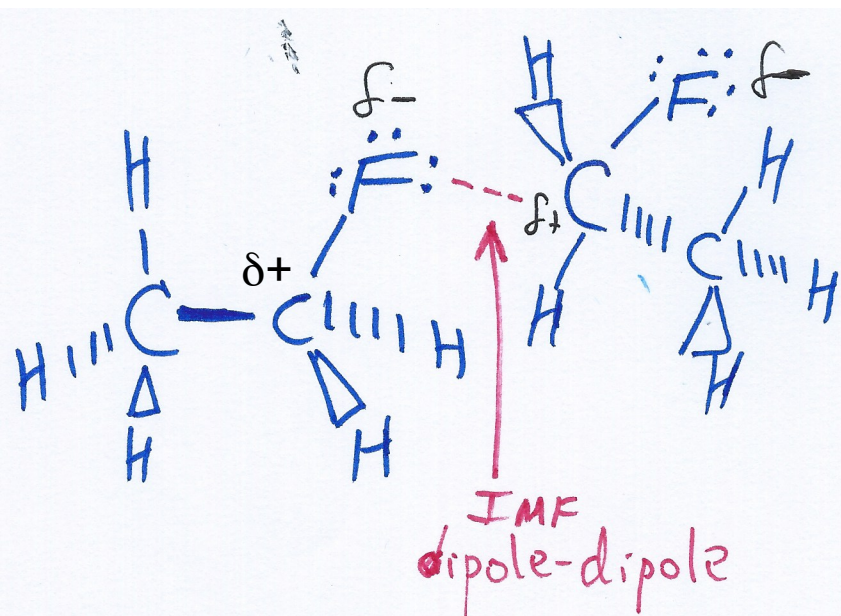 H
δ-
F
δ-
H
F
H
δ+
C
δ+
C
C
C
H
H
H
H
H
H
H
IMF
dipole-dipole